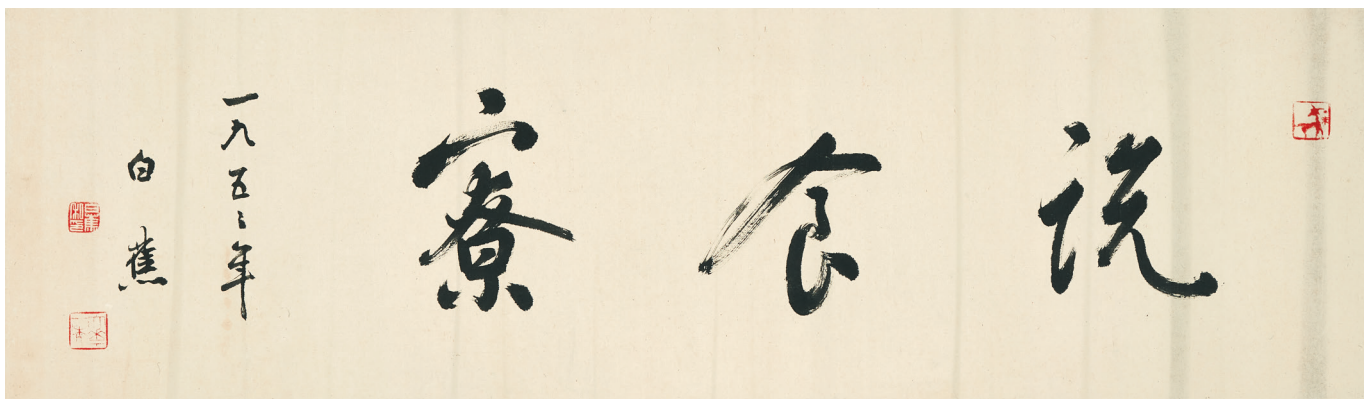 说食寮
一九五五年
白蕉